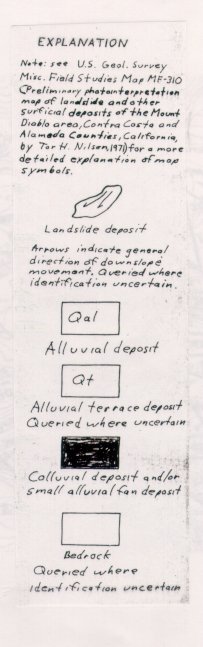 EXPLANATION
Note: see U.S. Geol. Survey
Misc. Field Studies Map MF-310
(Preliminary photointerpretation
map of landslide and other
surficial deposits of the Mount
Diablo area, Contra Costa and
Alameda Counties, California,
by Tor H. Nilsen, 1971) for a more
detailed explanation of map
symbols.
Landslide deposit
Arrows indicate general
direction of downslope
movement. Queried where
identification uncertain.
Qal
Alluvial deposit
Qt
Alluvial terrace deposit
Queried where uncertain
Colluvial deposit and/or
small alluvial fan deposit
Bedrock
Queried where
identification uncertain